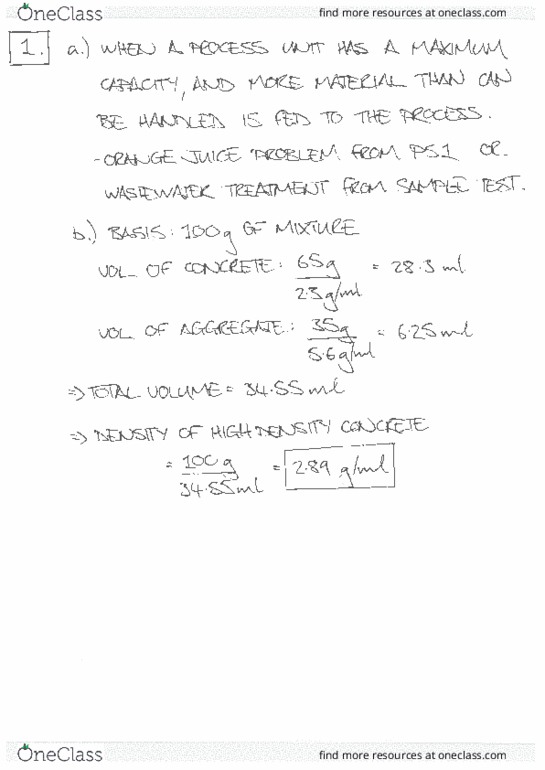 OneClass
find more resources at oneclass.com
1. a.) WHEN A PROCESS UNIT HAS A MAXIMUM
CAPACITY, AND MORE MATERIAL THAN CAN
BE HANDLED IS FED TO THE PROCESS.
- ORANGE JUICE PROBLEM FROM PS1 OR
WASTEWATER TREATMENT FROM SAMPLE TEST.
b.) BASIS: 100g OF MIXTURE
VOL. OF CONCRETE: 65g / 2.3g/ml = 28.3 ml
VOL OF AGGREGATE: 35g / 5.6g/ml = 6.25ml
=> TOTAL VOLUME = 34.55ml
=> DENSITY OF HIGH DENSITY CONCRETE
= 100g / 34.55ml = 2.89 g/ml
OneClass
find more resources at oneclass.com